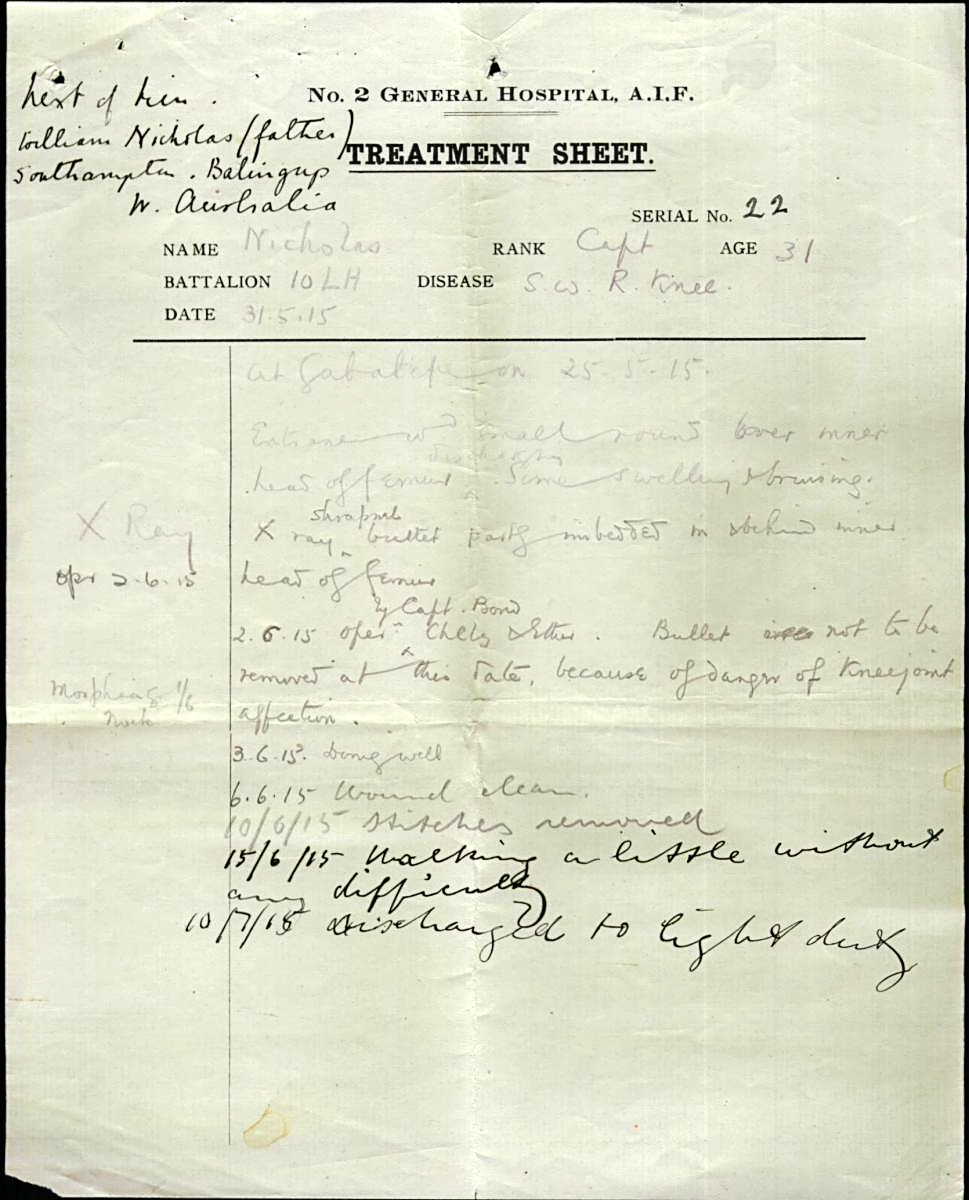 Next of kin.
William Nicholas (father)
Southampton. Balingup
W. Australia
No. 2 General Hospital, A.I.F.
TREATMENT SHEET.
SERIAL No. 22
NAME Nicholas RANK Capt AGE 31
BATTALION 10 LH DISEASE S.W. R. Knee.
DATE 31.5.15
at Gabatepe on 25.5.15.
Entrance wd small round over inner
discharging
head of femur. Some swelling & bruising.
shrapnel
X Ray X ray bullet partly imbedded in & behind inner
opr 2.6.15 head of femur
by Capt. Bond
2.6.15 opern & Ether. Bullet not to be
removed at this date, because of danger of Kneejoint
Morphia g 1/6
affection.
3.6.15. Doing well
6.6.15 Wound clean.
10/6/15 Stitches removed
15/6/15 Walking a little without
any difficulty
10/7/15 Discharged to light duty